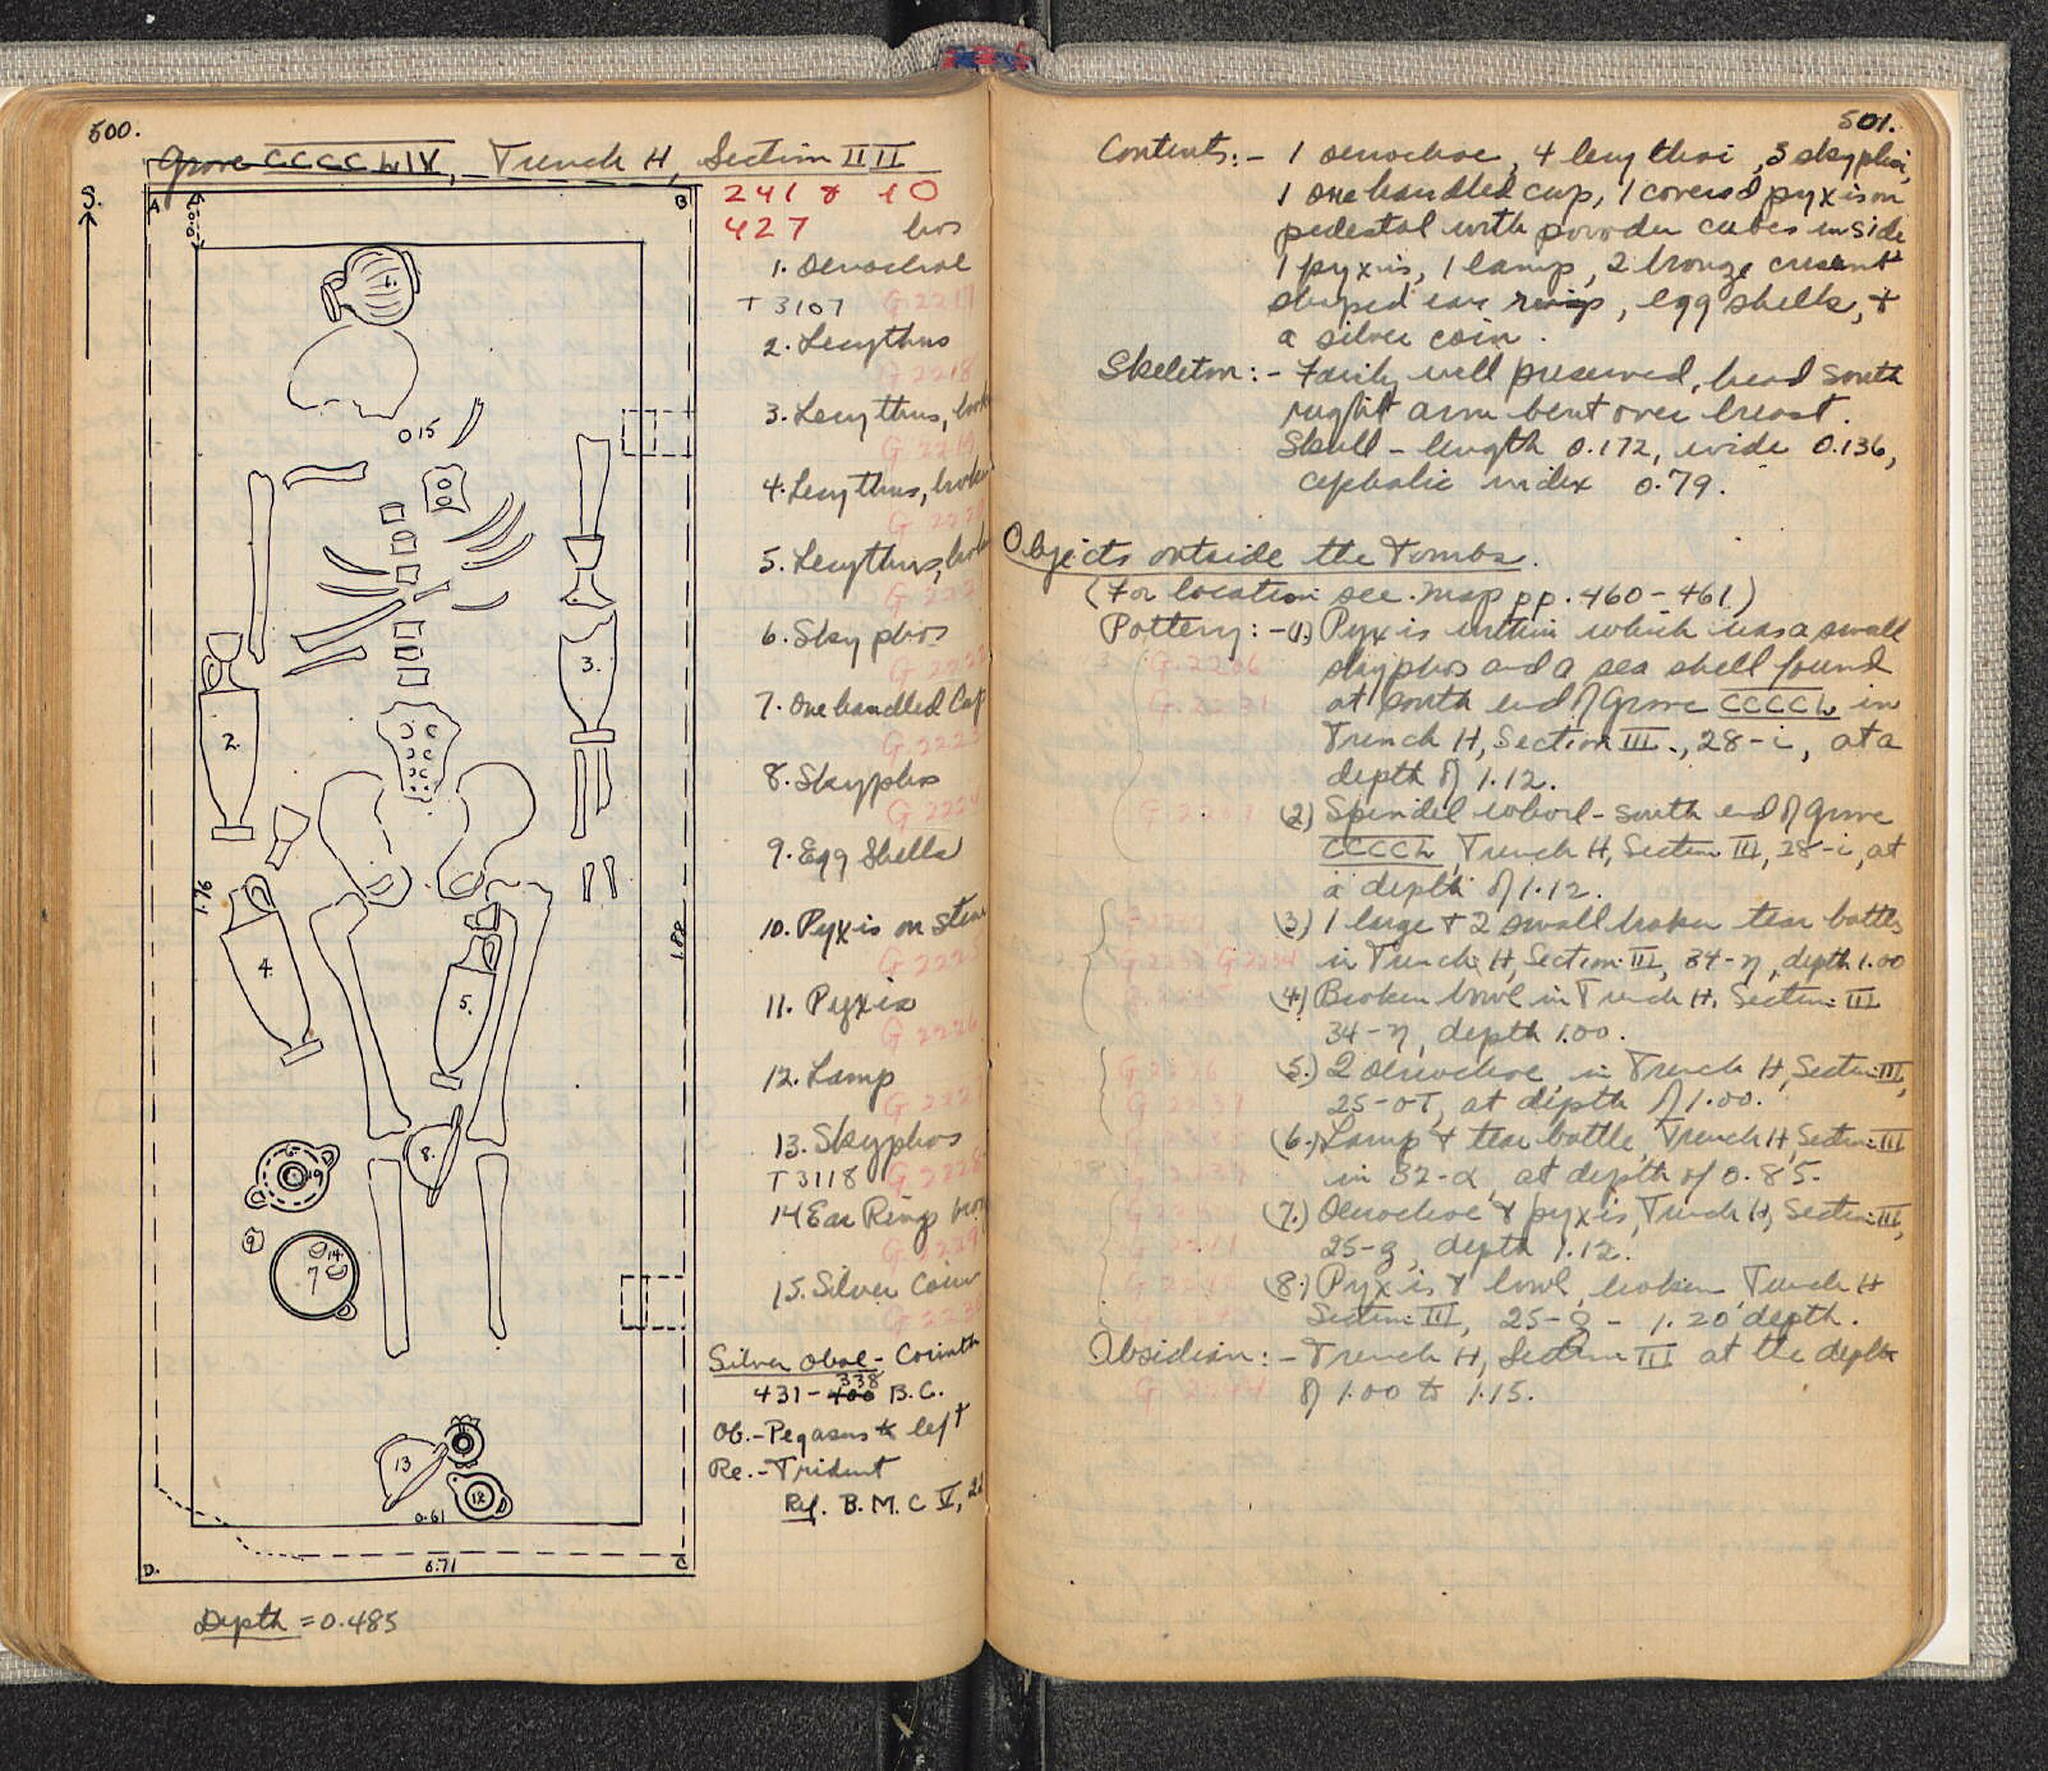 500.
Grave CCCCLIV, Trench H, Section III
S.
A
B
241 8 10
427
1. Oenochoe
T 3107 G 2217
2. Lecythus
G 2218
3. Lecythus, brok
G 2219
4. Lecythus, broken
G 222
5. Lecythus, brok
G 222
6. Skyphos
G 2222
7. One handled Cup
G 2223
8. Skyphos
G 2224
9. Egg Shells
10. Pyxis on Stem
G 2225
11. Pyxis
G 2226
12. Lamp
G 2227
13. Skyphos
T 3118 G 2228
14 Ear Rings bron
G 2229
15. Silver Coin
G 2230
Silver Obol - Corinth
338
431 - 400 B.C.
Ob. - Pegasus to left
Re. - Trident
Ref. B. M. C V, 22
1.
15
3.
2.
1.76
1.88
4.
5.
8.
9
14.
7
13
12
0.61
D.
0.71
C
Depth = 0.485
501.
Contents: - 1 oenochoe, 4 lecythoi, 3 skyphoi,
1 one handled cup, 1 covered pyxis on
pedestal with powder cubes inside
1 pyxis, 1 lamp, 2 bronze cresent
shaped ear rings, egg shells, +
a silver coin.
Skeleton: - Fairly well preserved, head south
right arm bent over breast.
Skull - length 0.172, wide 0.136,
cephalic index 0.79.
Objects outside the Tombs.
(For location see map pp. 460 - 461)
Pottery: - (1.) Pyxis within which was a small
skyphos and a sea shell found
at south end of Grave CCCCL in
Trench H, Section III., 28-i, at a
depth of 1.12.
(2) Spindel whorl - south end of Grave
CCCCL, Trench H, Section III, 28-i, at
a depth of 1.12.
(3) 1 large + 2 small broken tear bottles
in Trench H, Section III, 34-η, depth 1.00
(4) Broken bowl in Trench H, Section III
34-η, depth 1.00.
(5.) 2 Oenochoe, in Trench H, Section III,
25-στ, at depth of 1.00.
(6.) Lamp + tear bottle, Trench H, Section III
in 32-α, at depth of 0.85.
(7.) Oenochoe + pyxis, Trench H, Section III,
25-g, depth 1.12.
(8.) Pyxis + bowl, broken Trench H
Section III, 25-g - 1.20 depth.
Obsidian: - Trench H, Section III at the depth
of 1.00 to 1.15.
G 2244